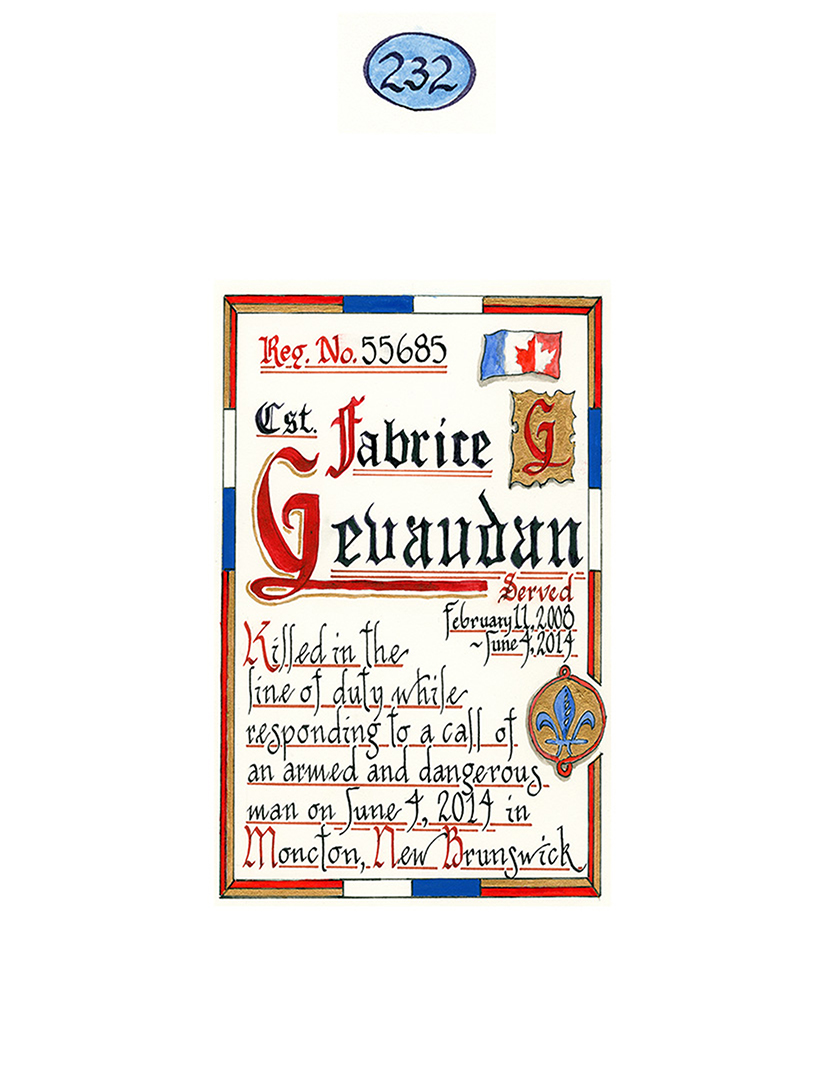 232
Reg. No. 55685
Cst. Fabrice
G
Gevaudan
Served
February 11, 2008
~June 4, 2014
Killed in the
line of duty while
responding to a call of
an armed and dangerous
man on June 4, 2014 in
Moncton, New Brunswick